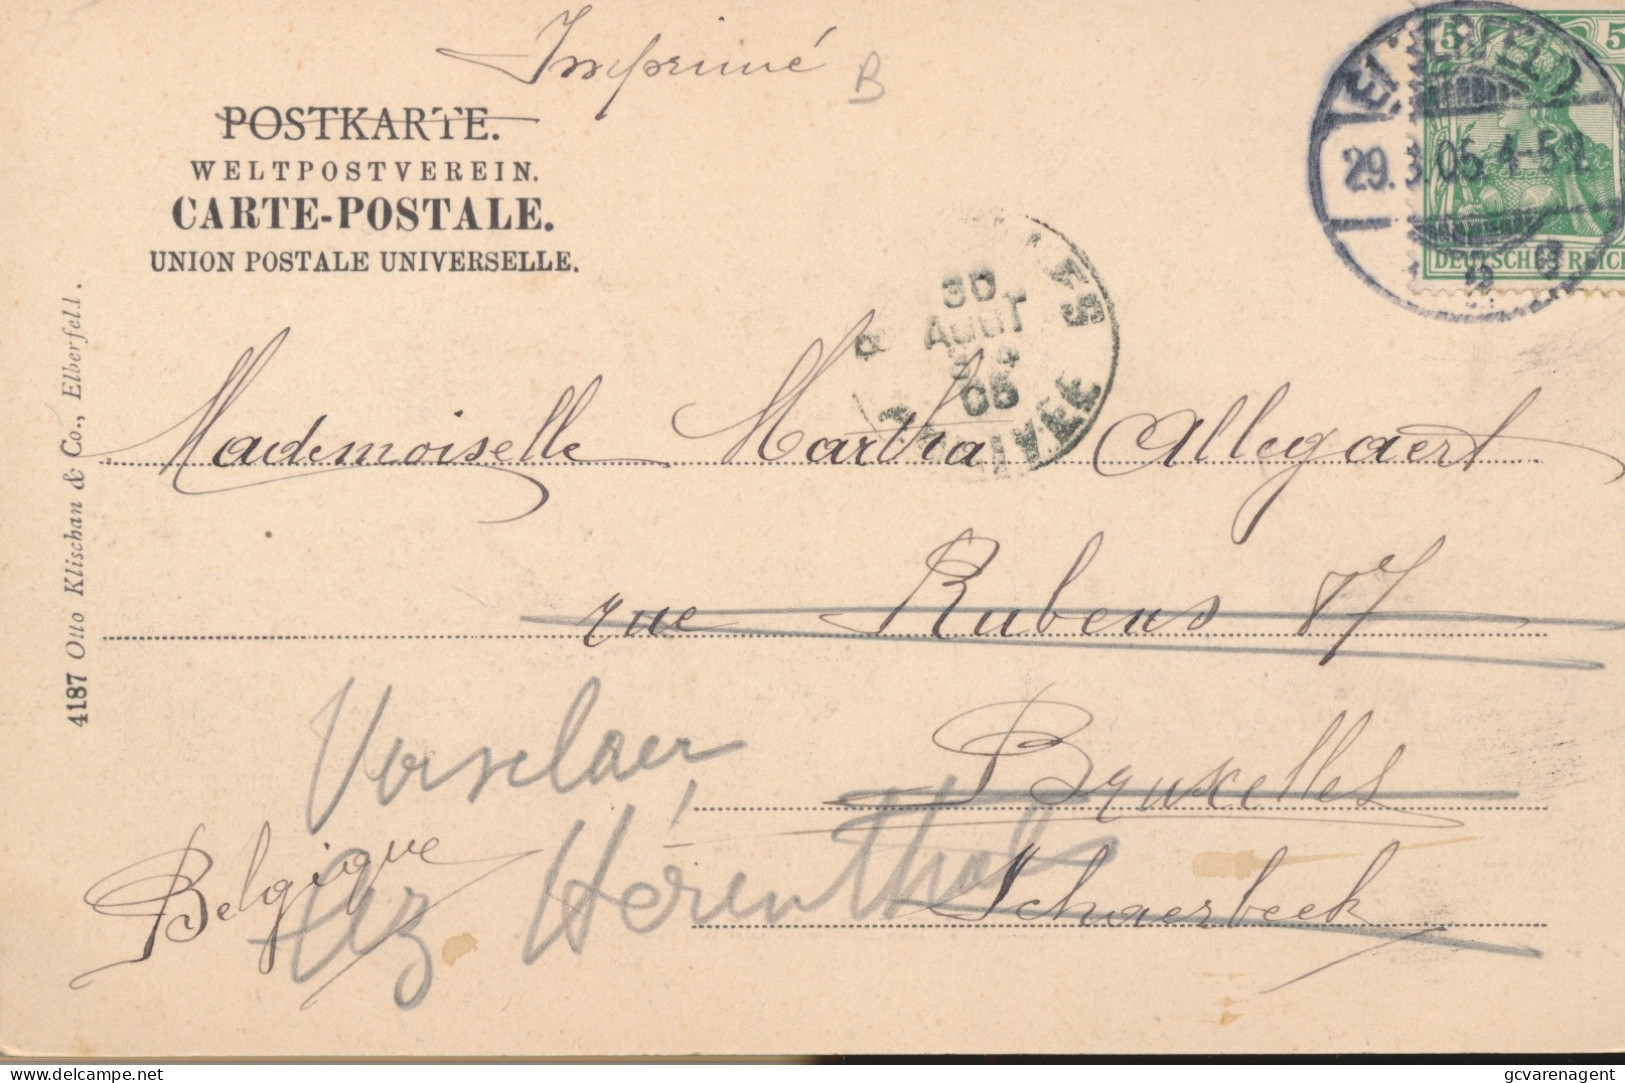 Imprimé
B
POSTKARTE.
WELTPOSTVEREIN.
CARTE-POSTALE.
UNION POSTALE UNIVERSELLE.
5 5
ELBERFELD
29. 05. 4-5
DEUTSCHES REICH
30
AOUT
05
4187 Otto Klischan & Co., Elberfeld.
Mademoiselle Martha Allegaert
rue Rubens 87
Bruxelles
Schaerbeek
Belgique
Vorselaer
Hérenthals
delcampe.net
gcvarenagent